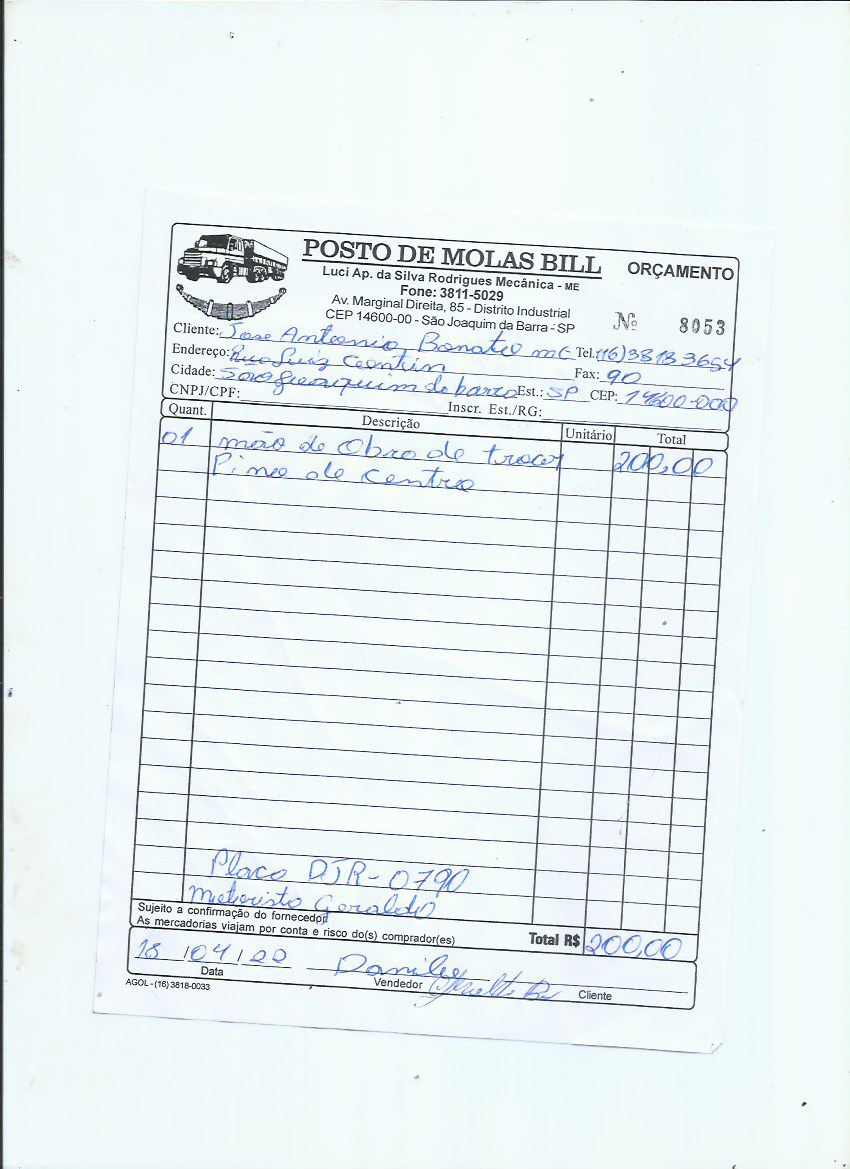 POSTO DE MOLAS BILL
ORÇAMENTO
Luci Ap. da Silva Rodrigues Mecânica - ME
Fone: 3811-5029
Av. Marginal Direita, 85 - Distrito Industrial
CEP 14600-00 - São Joaquim da Barra - SP
Nº 8053
Cliente: Jose Antonio Bonato me Tel. (16) 3818 3654
Endereço: Rua Luiz Fax: 90
Cidade: São Joaquim da barra Est.: SP CEP: 14600-000
CNPJ/CPF: Inscr. Est./RG:
Quant. Descrição Unitário Total
01 mão de Obra de trocar 200,00
Pino de Centro
Placa DJR-0790
Motorista Geraldo
Sujeito a confirmação do fornecedor
As mercadorias viajam por conta e risco do(s) comprador(es)
Total R$ 200,00
18/04/20 Danilo
Data Vendedor Cliente
AGOL - (16) 3818-0033